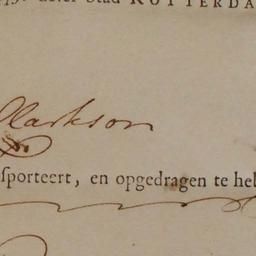 dezer Stad ROTTERDA
Clarkson
sporteert, en opgedragen te heb